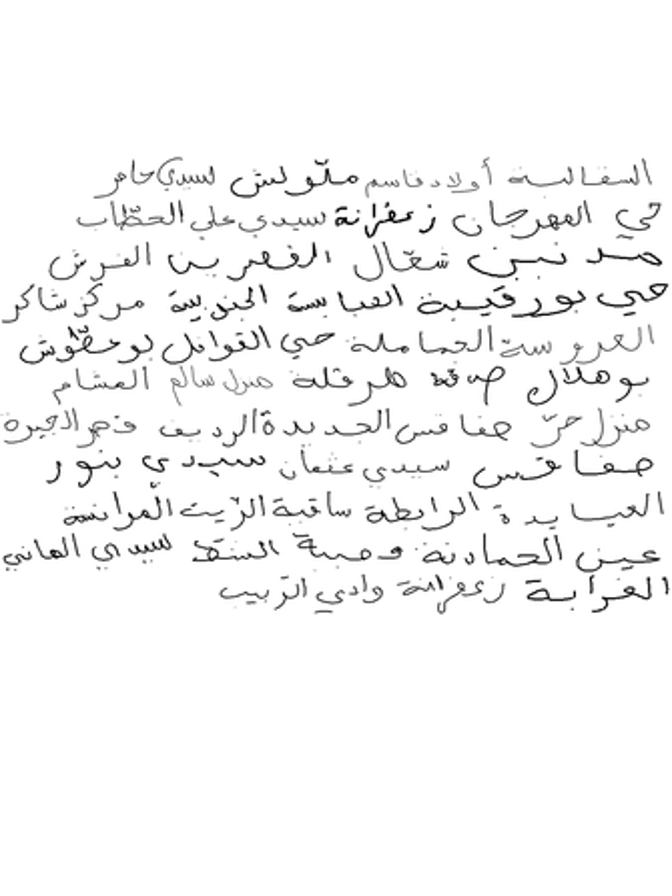 السقالبة أولاد قاسم ملّولش لسيدي حامر
حي المهرجان زعفرانة سيدي علي الحطّاب
مدنين شعّال القصرين الفرش
حي بورقيبة العبابسة الجندبية مركز شاكر
العروسة الحماملة حي القوافل بوعطّوش
بوهلال هرقلة منزل سالم العشام
منزل حرّ صفاقس الجديدة الرديف
صفاقس سيدي عثمان سيدي بنور
العبايدة الرابطة ساقية الزّيت
عين الحمادنة قصبة الشطّ سيدي الهاني
الغرابة زعفرانة وادي الزبيب